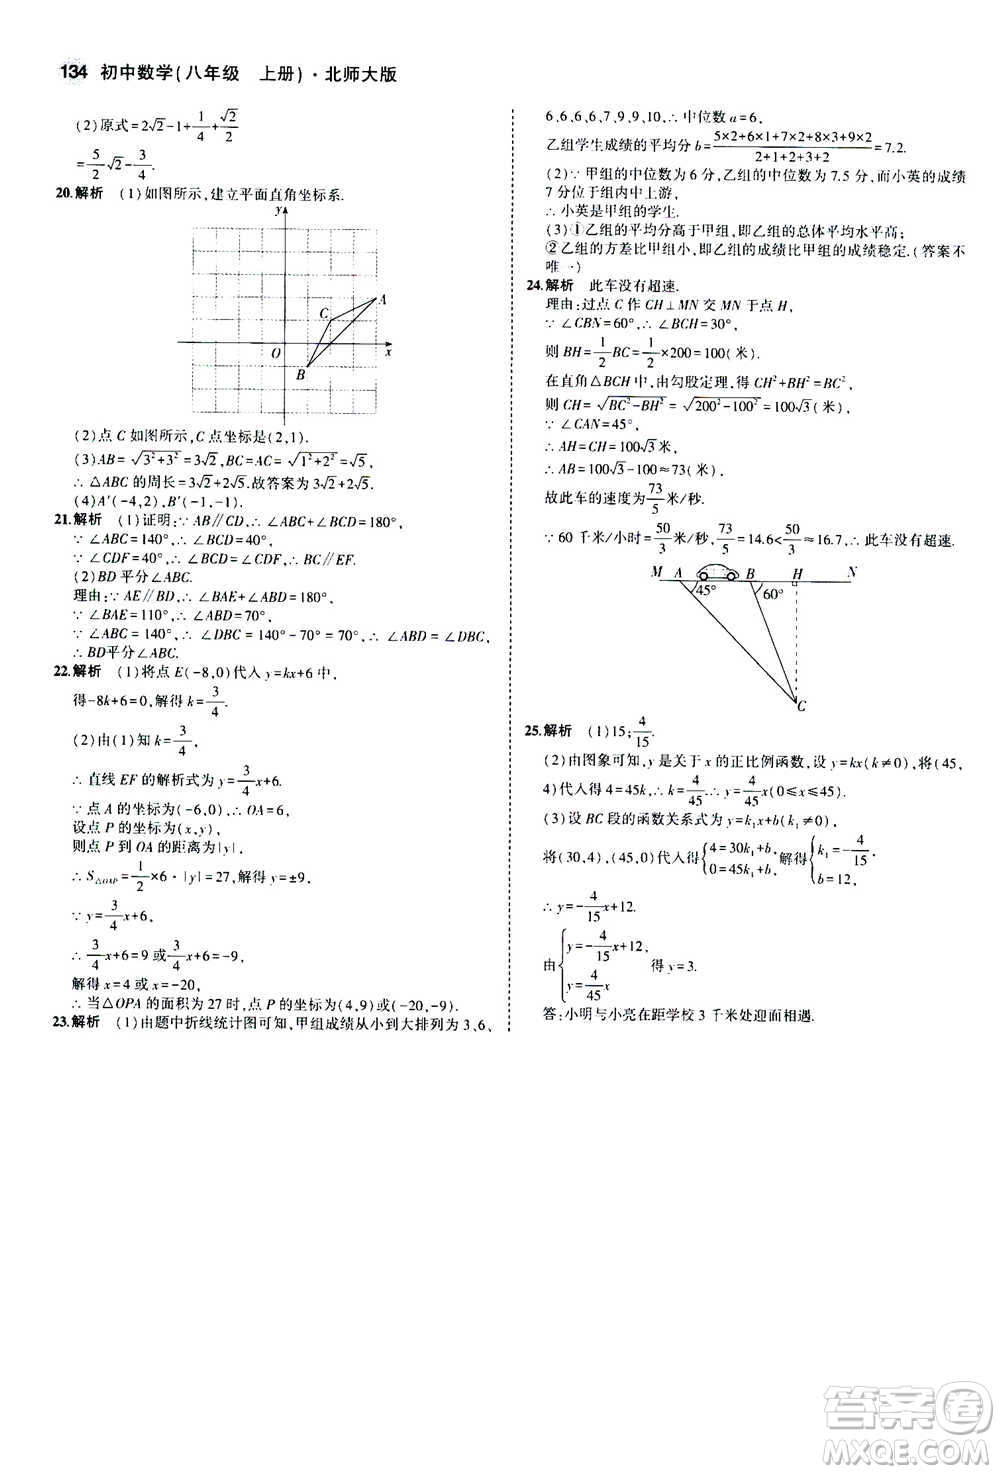 134 初中数学(八年级 上册)·北师大版
(2)原式=2√2-1+1/4+√2/2
=5/2√2-3/4.
20.解析 (1)如图所示,建立平面直角坐标系.
y
A
C
O
x
B
(2)点 C 如图所示,C 点坐标是(2,1).
(3)AB=√(3²+3²)=3√2,BC=AC=√(1²+2²)=√5,
∴△ABC 的周长=3√2+2√5.故答案为3√2+2√5.
(4)A′(-4,2),B′(-1,-1).
21.解析 (1)证明:∵AB∥CD,∴∠ABC+∠BCD=180°,
∵∠ABC=140°,∴∠BCD=40°,
∵∠CDF=40°,∴∠BCD=∠CDF,∴BC∥EF.
(2)BD 平分∠ABC.
理由:∵AE∥BD,∴∠BAE+∠ABD=180°,
∵∠BAE=110°,∴∠ABD=70°,
∵∠ABC=140°,∴∠DBC=140°-70°=70°,∴∠ABD=∠DBC,
∴BD平分∠ABC.
22.解析 (1)将点 E(-8,0)代入 y=kx+6 中,
得-8k+6=0,解得 k=3/4.
(2)由(1)知 k=3/4,
∴直线 EF 的解析式为 y=3/4x+6.
∵点 A 的坐标为(-6,0),∴OA=6,
设点 P 的坐标为(x,y),
则点 P 到 OA 的距离为|y|,
∴S△OAP=1/2×6·|y|=27,解得 y=±9,
∵y=3/4x+6,
∴3/4x+6=9 或3/4x+6=-9,
解得 x=4 或 x=-20,
∴当△OPA 的面积为 27 时,点 P 的坐标为(4,9)或(-20,-9).
23.解析 (1)由题中折线统计图可知,甲组成绩从小到大排列为 3,6,
6,6,6,6,7,9,9,10,∴中位数 a=6,
乙组学生成绩的平均分 b=(5×2+6×1+7×2+8×3+9×2)/(2+1+2+3+2)=7.2.
(2)∵甲组的中位数为 6 分,乙组的中位数为 7.5 分,而小英的成绩
7 分位于组内中上游,
∴小英是甲组的学生.
(3)①乙组的平均分高于甲组,即乙组的总体平均水平高;
②乙组的方差比甲组小,即乙组的成绩比甲组的成绩稳定.(答案不
唯一)
24.解析 此车没有超速.
理由:过点 C 作 CH⊥MN 交 MN 于点 H,
∵∠CBN=60°,∴∠BCH=30°,
则 BH=1/2BC=1/2×200=100(米),
在直角△BCH 中,由勾股定理,得 CH²+BH²=BC²,
则 CH=√(BC²-BH²)=√(200²-100²)=100√3(米),
∵∠CAN=45°,
∴AH=CH=100√3米,
∴AB=100√3-100≈73(米),
故此车的速度为73/5米/秒.
∵60 千米/小时=50/3米/秒,73/5=14.6<50/3≈16.7,∴此车没有超速.
M A B H N
45° 60°
C
25.解析 (1)15;4/15.
(2)由图象可知,y 是关于 x 的正比例函数,设 y=kx(k≠0),将(45,
4)代入得 4=45k,∴k=4/45.∴y=4/45x(0≤x≤45).
(3)设 BC 段的函数关系式为 y=k₁x+b(k₁≠0),
将(30,4),(45,0)代入得{4=30k₁+b, 0=45k₁+b,解得{k₁=-4/15, b=12,
∴y=-4/15x+12.
由{y=-4/15x+12, y=4/45x 得 y=3.
答:小明与小亮在距学校 3 千米处迎面相遇.
答案圈
MXQE.COM